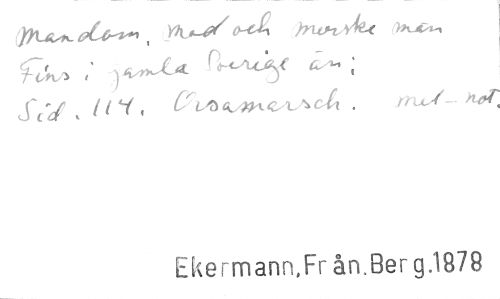 Mandom, mod och morske män
Fins i gamla Sverige än;
Sid. 114. Orsamarsch. mel-not.
Ekermann, Från.Berg.1878